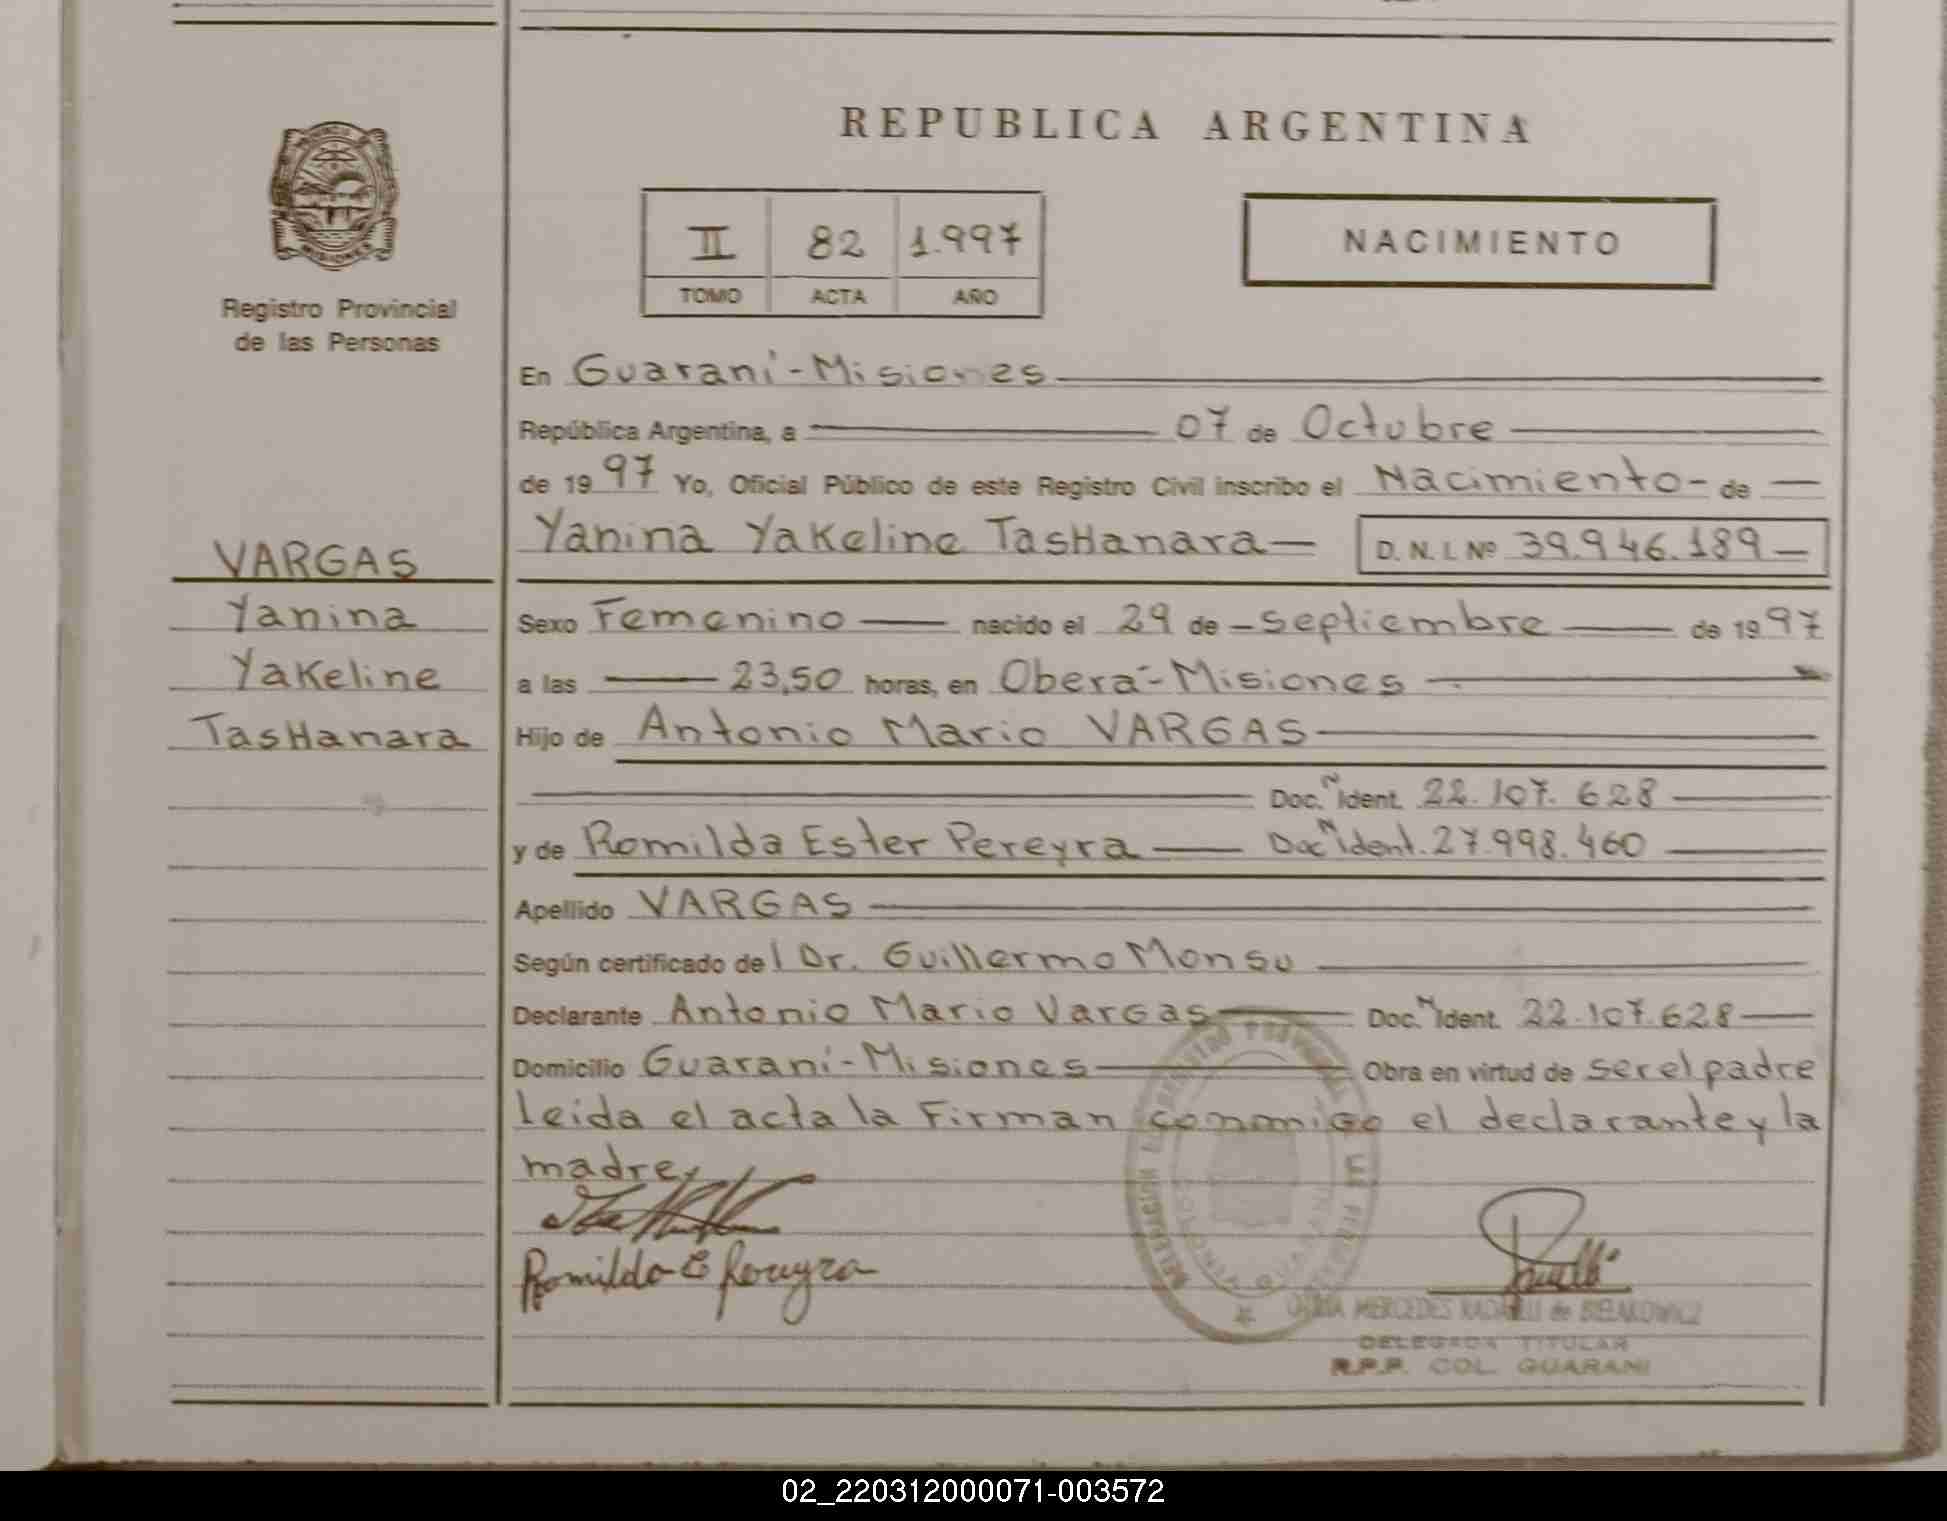 REPUBLICA ARGENTINA
II 82 1.997
TOMO ACTA AÑO
NACIMIENTO
MISIONES
Registro Provincial
de las Personas
VARGAS
Yanina
Yakeline
TasHanara
En Guaraní-Misiones
República Argentina, a 07 de Octubre
de 1997 Yo, Oficial Público de este Registro Civil inscribo el Nacimiento- de
Yanina Yakeline TasHanara D.N.I. Nº 39.946.189
Sexo Femenino nacido el 29 de septiembre de 1997
a las 23,50 horas, en Oberá-Misiones
Hijo de Antonio Mario VARGAS
Doc. N Ident. 22.107.628
y de Romilda Ester Pereyra Doc N Ident. 27.998.460
Apellido VARGAS
Según certificado del Dr. Guillermo Monsu
Declarante Antonio Mario Vargas Doc. N Ident. 22.107.628
Domicilio Guaraní-Misiones Obra en virtud de ser el padre
leida el acta la Firman conmigo el declarante y la
madre,
Romilda E Pereyra
MERCEDES de BIELAKOWICZ
DELEGADA TITULAR
R.P.P. COL. GUARANI
02_220312000071-003572